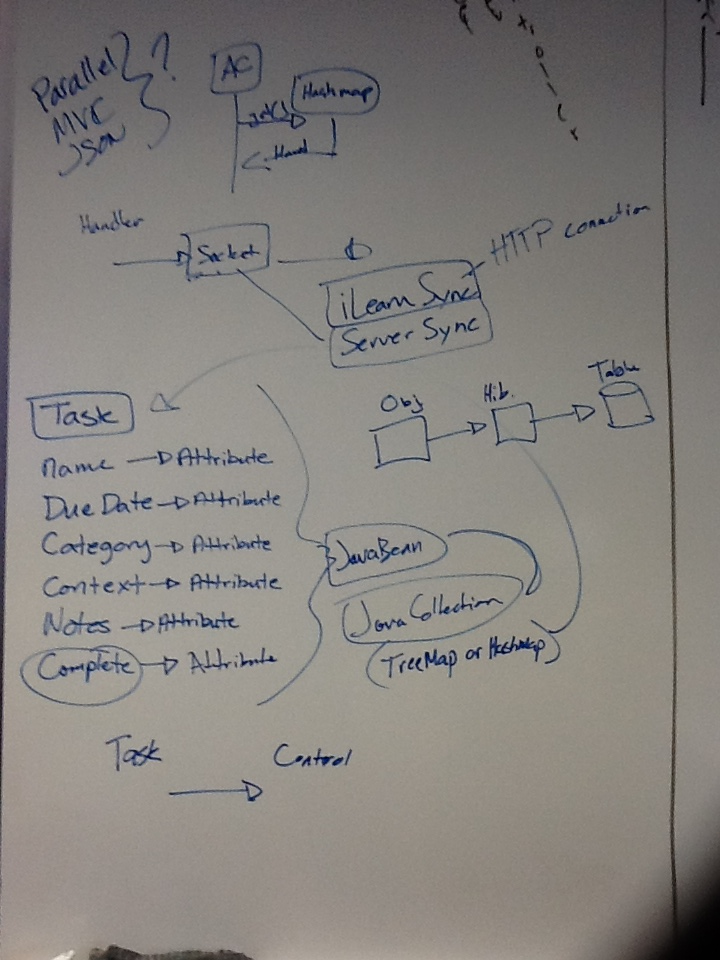 Parallel
MVC
JSON
?
AC
Hashmap
Handler
Socket
HTTP connection
iLearn Sync
Server Sync
Task
Name → Attribute
Due Date → Attribute
Category → Attribute
Context → Attribute
Notes → Attribute
Complete → Attribute
Obj
Hib.
Table
JavaBean
Java Collection
(TreeMap or Hashmap)
Task → Control